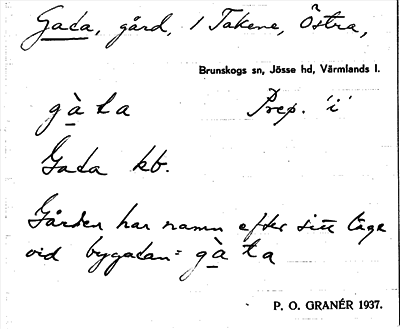 Gata, gård, i Takene, Östra,
Brunskogs sn, Jösse hd, Värmlands l.
gà ta Prep. 'i'
Gata kb.
Gården har namn efter sitt läge
vid bygatan = gà ta
P. O. GRANÉR 1937.